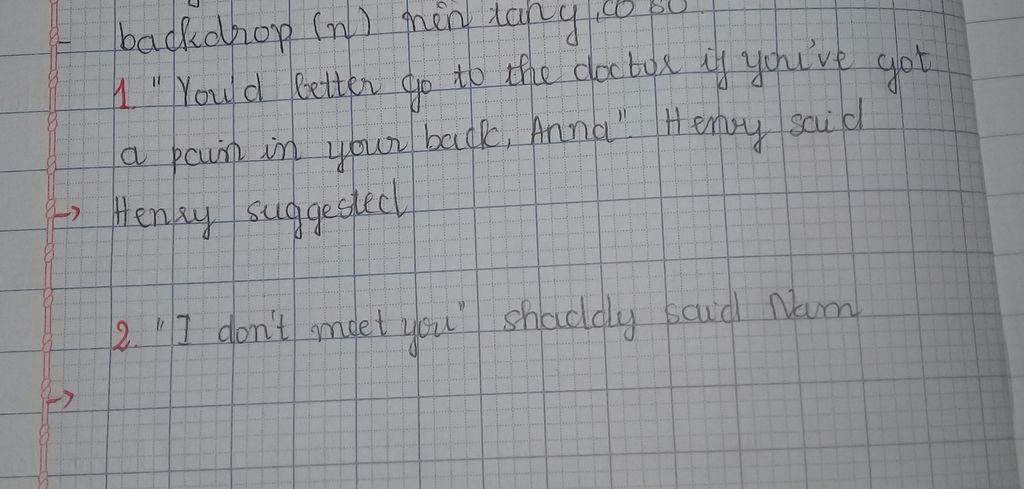 - backdrop (n) nền tảng, cơ sở
1. "You'd better go to the doctor if you've got
a pain in your back, Anna". Henry said
→ Henry suggested
2. "I don't meet you" shaddy said Nam
→